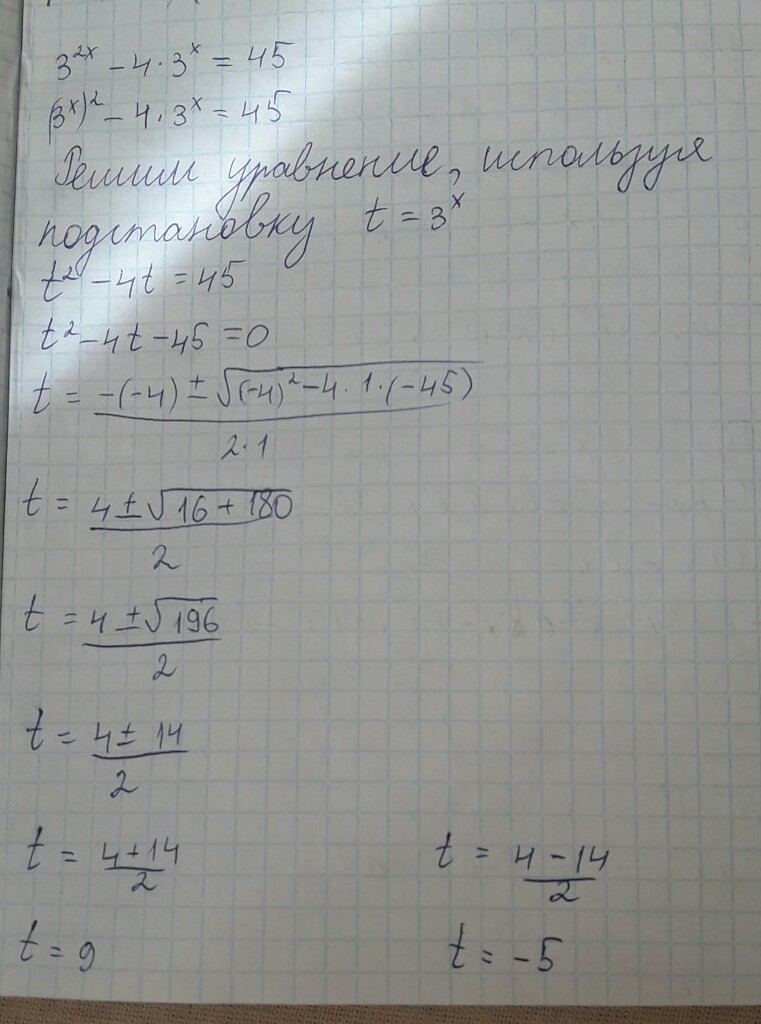 3^{2x} - 4 · 3^x = 45
(3^x)^2 - 4 · 3^x = 45
Решим уравнение, используя
подстановку t = 3^x
t^2 - 4t = 45
t^2 - 4t - 45 = 0
t = \frac{-(-4) ± \sqrt{(-4)^2 - 4 · 1 · (-45)}}{2 · 1}
t = \frac{4 ± \sqrt{16 + 180}}{2}
t = \frac{4 ± \sqrt{196}}{2}
t = \frac{4 ± 14}{2}
t = \frac{4 + 14}{2} t = \frac{4 - 14}{2}
t = 9 t = -5